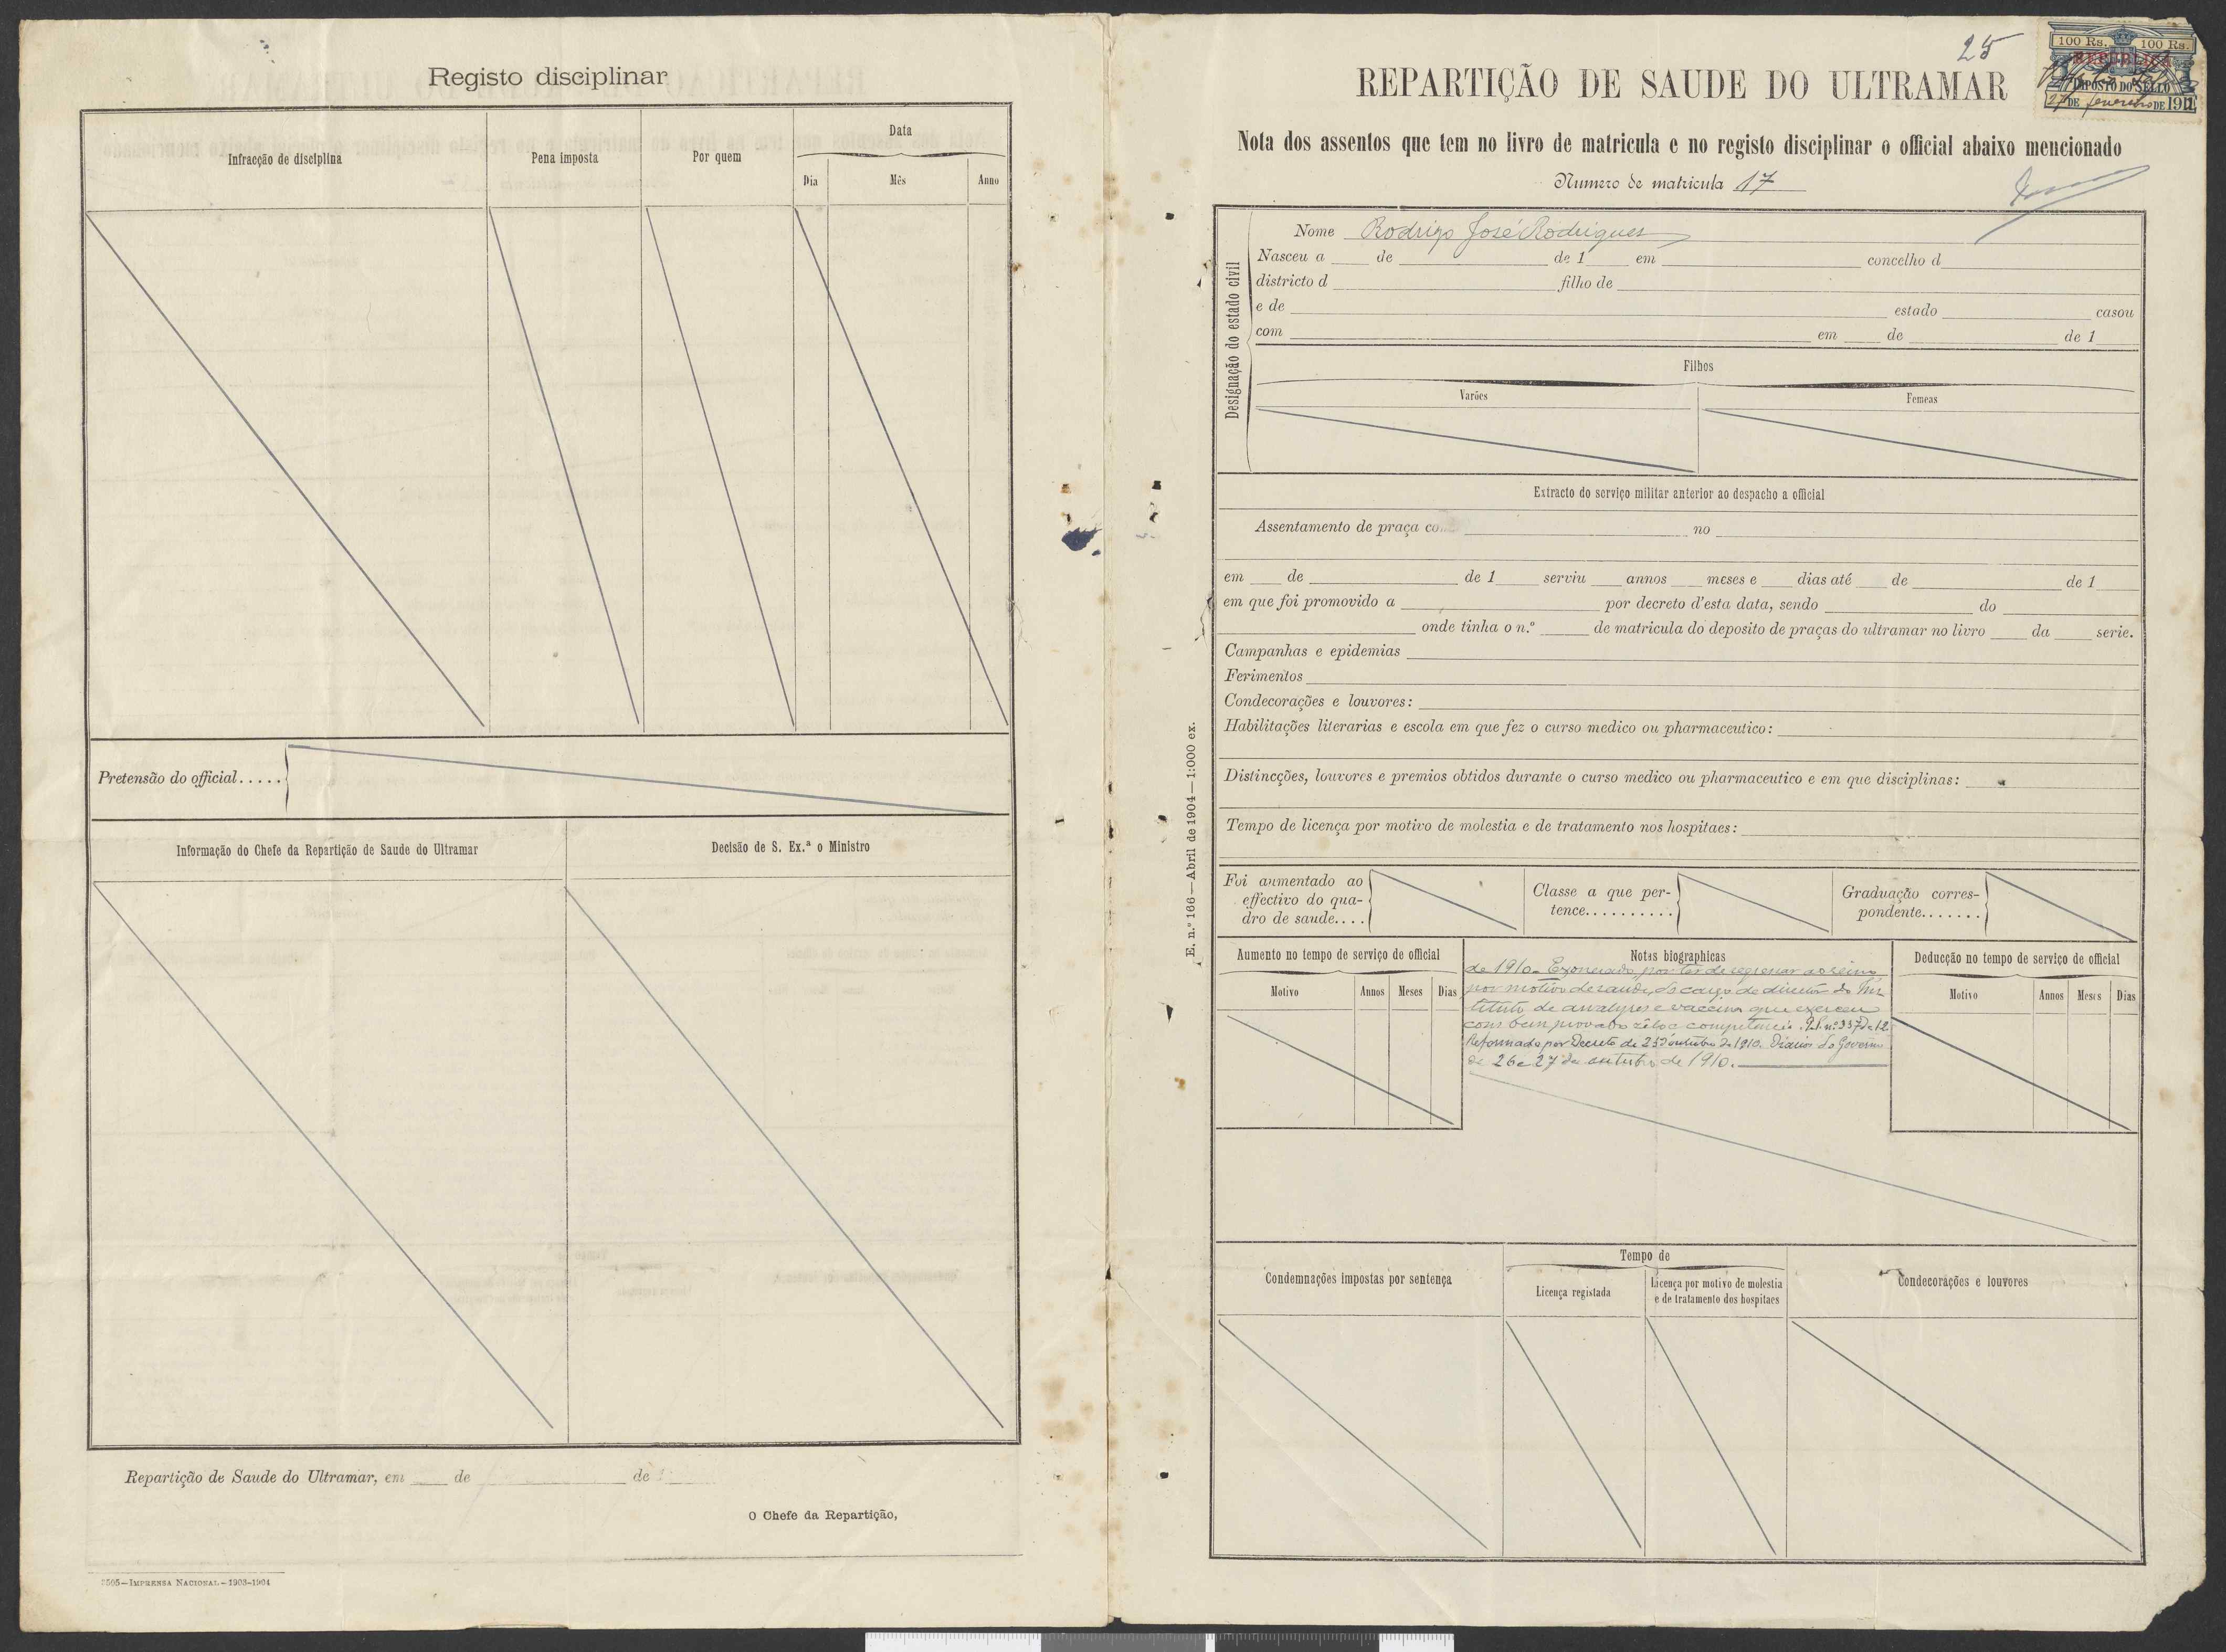 Registo disciplinar
Infracção de disciplina
Pena imposta
Por quem
Data
Dia
Mês
Anno
Pretensão do official.....
Informação do Chefe da Repartição de Saude do Ultramar
Decisão de S. Ex.ª o Ministro
Repartição de Saude do Ultramar, em ____ de ____ de
O Chefe da Repartição,
505—IMPRENSA NACIONAL—1903-1904
25
100 Rs. 100 Rs.
REPUBLICA
IMPOSTO DO SELLO
27 DE fevereiro DE 1911
REPARTIÇÃO DE SAUDE DO ULTRAMAR
Nota dos assentos que tem no livro de matricula e no registo disciplinar o official abaixo mencionado
Numero de matricula 17
Designação do estado civil
Nome Rodrigo José Rodrigues
Nasceu a ____ de ____ de 1____ em ____ concelho d____
districto d ____ filho de ____
e de ____ estado ____ casou
com ____ em ____ de ____ de 1____
Filhos
Varões
Femeas
Extracto do serviço militar anterior ao despacho a official
Assentamento de praça co ____ no ____
em ____ de ____ de 1____ serviu ____ annos ____ meses e ____ dias até ____ de ____ de 1____
em que foi promovido a ____ por decreto d'esta data, sendo ____ do ____
____ onde tinha o n.º ____ de matricula do deposito de praças do ultramar no livro ____ da ____ serie.
Campanhas e epidemias
Ferimentos
Condecorações e louvores:
Habilitações literarias e escola em que fez o curso medico ou pharmaceutico:
Distincções, louvores e premios obtidos durante o curso medico ou pharmaceutico e em que disciplinas:
Tempo de licença por motivo de molestia e de tratamento nos hospitaes:
Foi aumentado ao
effectivo do qua-
dro de saude....
Classe a que per-
tence..........
Graduação corres-
pondente.......
Aumento no tempo de serviço de official
Motivo
Annos
Meses
Dias
Notas biographicas
de 1910. Exonerado, por ter de regressar ao reino
por motivo de saude, do cargo de director do Ins
tituto de analyses e vaccina que exerceu
com bem provado zêlo e competencia. P.P. nº 337 de 12.
Reformado por Decreto de 25 d'outubro de 1910. Diarios do Governo
de 26 e 27 de outubro de 1910.
Deducção no tempo de serviço de official
Motivo
Annos
Meses
Dias
Condemnações impostas por sentença
Tempo de
Licença registada
Licença por motivo de molestia
e de tratamento dos hospitaes
Condecorações e louvores
E. n.º 166—Abril de 1904—1:000 ex.